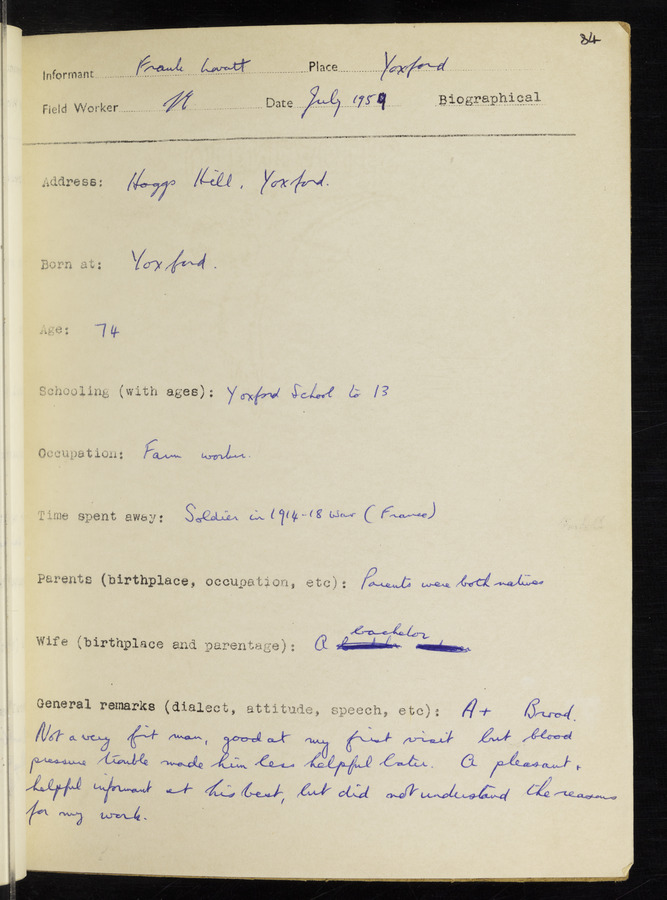 84
Informant Frank Lovatt Place Yoxford
Field Worker Date July 1959 Biographical
Address: Hoggs Hill, Yoxford.
Born at: Yoxford.
Age: 74
Schooling (with ages): Yoxford School to 13
Occupation: Farm worker.
Time spent away: Soldier in 1914-18 War (France)
Parents (birthplace, occupation, etc): Parents were both natives
Wife (birthplace and parentage): A bachelor
General remarks (dialect, attitude, speech, etc): A+ Broad.
Not a very fit man, good at my first visit but blood
pressure trouble made him less helpful later. A pleasant,
helpful informant at his best, but did not understand the reasons
for my work.